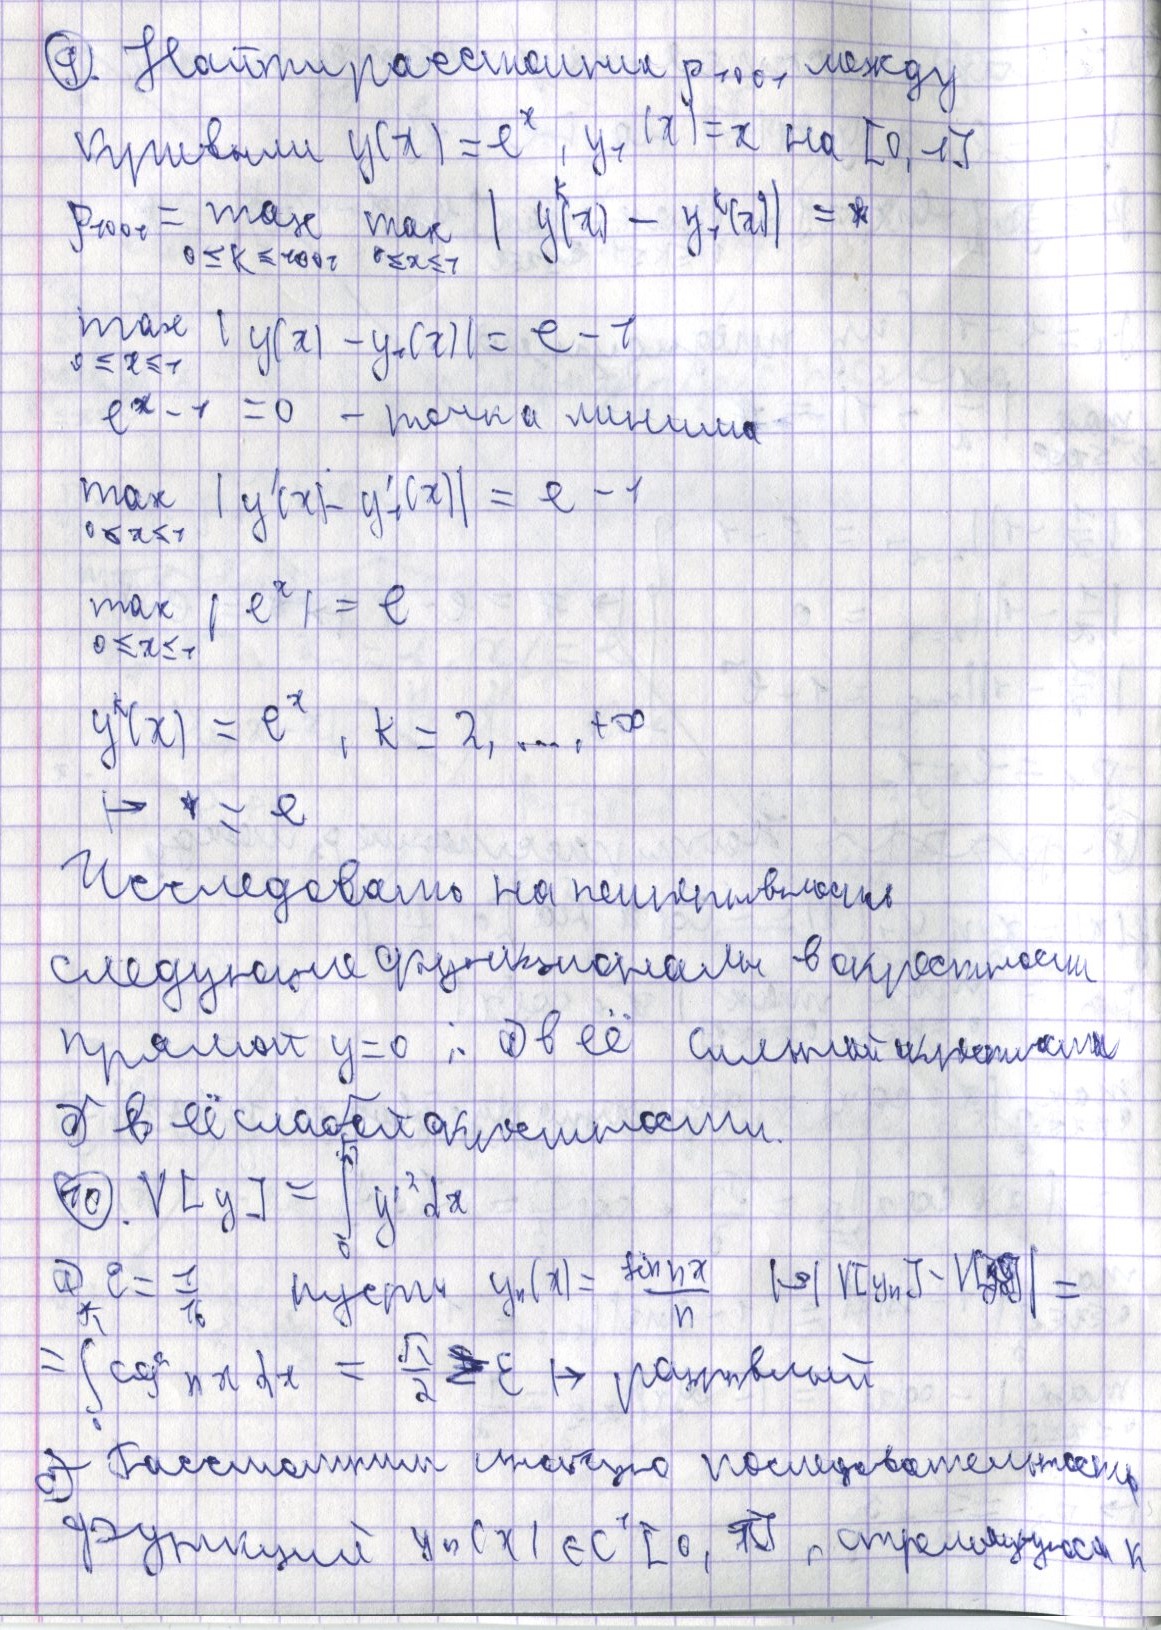 9. Найти расстояние ρ₁₀₀₁ между
кривыми y(x) = eˣ, y₁(x) = x на [0, 1]
ρ₁₀₀₁ = max 0≤k≤1001 max 0≤x≤1 | yᵏ(x) − y₁ᵏ(x) | = *
max 0≤x≤1 | y(x) − y₁(x) | = e − 1
eˣ − 1 = 0 − точка минима
max 0≤x≤1 | y'(x) − y₁'(x) | = e − 1
max 0≤x≤1 | eˣ | = e
yᵏ(x) = eˣ, k = 2, ..., +∞
↦ * = e
Исследовать на непрерывность
следующие функционалы в окрестности
прямой y=0 : а) в её сильной окрестности
б) в её слабой окрестности.
10. V[y] = ∫₀^π y'² dx
а) ε = 1/10 пусть yₙ(x) = sin nx / n ↦ | V[yₙ] − V[y] | =
= ∫₀^π cos² nx dx = π/2 ≥ ε ↦ разрывный
б) Рассмотрим последовательность
функций yₙ(x) ∈ C¹ [0, π], стремящуюся к